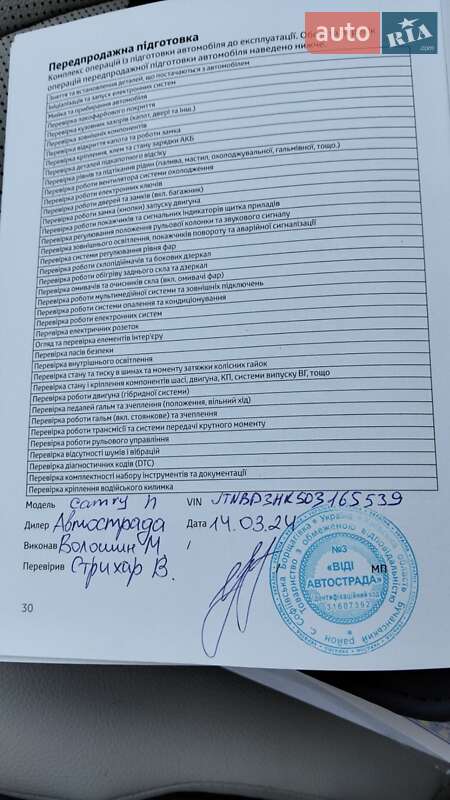 auto RIA .com
Передпродажна підготовка
Комплекс операцій із підготовки автомобіля до експлуатації.
операцій передпродажної підготовки автомобіля наведено нижче.
Зняття та встановлення деталей, що постачаються з автомобілем
Ініціалізація та запуск електронних систем
Мийка та прибирання автомобіля
Перевірка лакофарбового покриття
Перевірка кузовних зазорів (капот, двері та інш.)
Перевірка зовнішніх компонентів
Перевірка відкриття капота та роботи замка
Перевірка кріплення, клем та стану зарядки АКБ
Перевірка деталей підкапотного відсіку
Перевірка рівнів та підтікання рідин (палива, мастил, охолоджувальної, гальмівної, тощо.)
Перевірка роботи вентилятора системи охолодження
Перевірка роботи електронних ключів
Перевірка роботи дверей та замків (вкл. багажник)
Перевірка роботи замка (кнопки) запуску двигуна
Перевірка роботи покажчиків та сигнальних індикаторів щитка приладів
Перевірка регулювання положення рульової колонки та звукового сигналу
Перевірка зовнішнього освітлення, покажчиків повороту та аварійної сигналізації
Перевірка системи регулювання рівня фар
Перевірка роботи склопідіймачів та бокових дзеркал
Перевірка роботи обігріву заднього скла та дзеркал
Перевірка омивачів та очисників скла (вкл. омивачі фар)
Перевірка роботи мультимедійної системи та зовнішніх підключень
Перевірка роботи системи опалення та кондиціонування
Перевірка роботи електронних систем
Перевірка електричних розеток
Огляд та перевірка елементів інтер'єру
Перевірка пасів безпеки
Перевірка внутрішнього освітлення
Перевірка стану та тиску в шинах та моменту затяжки колісних гайок
Перевірка стану і кріплення компонентів шасі, двигуна, КП, системи випуску ВГ, тощо
Перевірка роботи двигуна (гібридної системи)
Перевірка педалей гальм та зчеплення (положення, вільний хід)
Перевірка роботи гальм (вкл. стоянкове) та зчеплення
Перевірка роботи трансмісії та системи передачі крутного моменту
Перевірка роботи рульового управління
Перевірка відсутності шумів і вібрацій
Перевірка діагностичних кодів (DTC)
Перевірка комплектності набору інструментів та документації
Перевірка кріплення водійського килимка
Модель Camry h VIN JTNBD3HK503165539
Дилер Автострада Дата 14.03.24
Виконав Волошин М. /
Перевірив Стрихар В. / МП
№3
«ВІДІ
АВТОСТРАДА»
Ідентифікаційний код
31607392
30